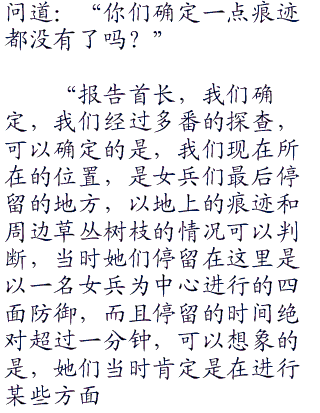 问道：“你们确定一点痕迹
都没有了吗？”
“报告首长，我们确
定，我们经过多番的探查，
可以确定的是，我们现在所
在的位置，是女兵们最后停
留的地方，以地上的痕迹和
周边草丛树枝的情况可以判
断，当时她们停留在这里是
以一名女兵为中心进行的四
面防御，而且停留的时间绝
对超过一分钟，可以想象的
是，她们当时肯定是在进行
某些方面